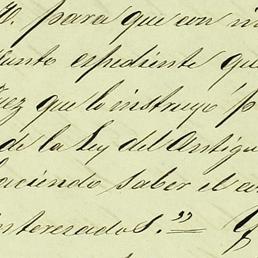 para que con
junto espediente que
Juez que lo instruyó p
de la Ley del Antigu
haciendo saber el
interesados.